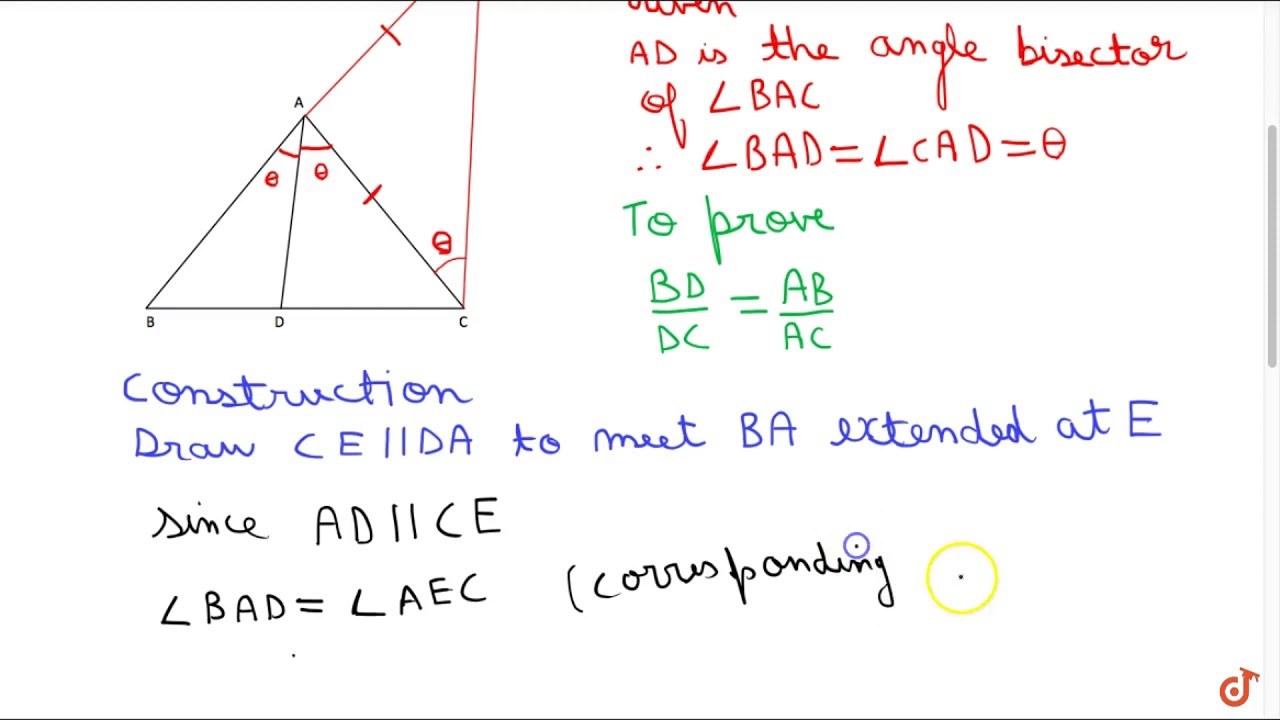 A
θ θ
θ
B D C
AD is the angle bisector
of ∠BAC
∴ ∠BAD = ∠CAD = θ
To prove
BD/DC = AB/AC
Construction
Draw CE||DA to meet BA extended at E
since AD||CE
∠BAD = ∠AEC (corresponding